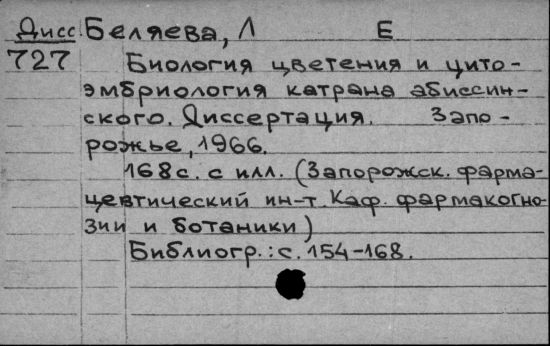 Дисс. Беляева, Л Е
727 Биология цветения и цито-
эмбриология катрана абиссин-
ского. Диссертация. Запо-
рожье, 1966.
168с. с илл. (Запорожск. фарма-
цевтический ин-т. Каф. фармакогно-
зии и ботаники)
Библиогр.: с. 154-168.